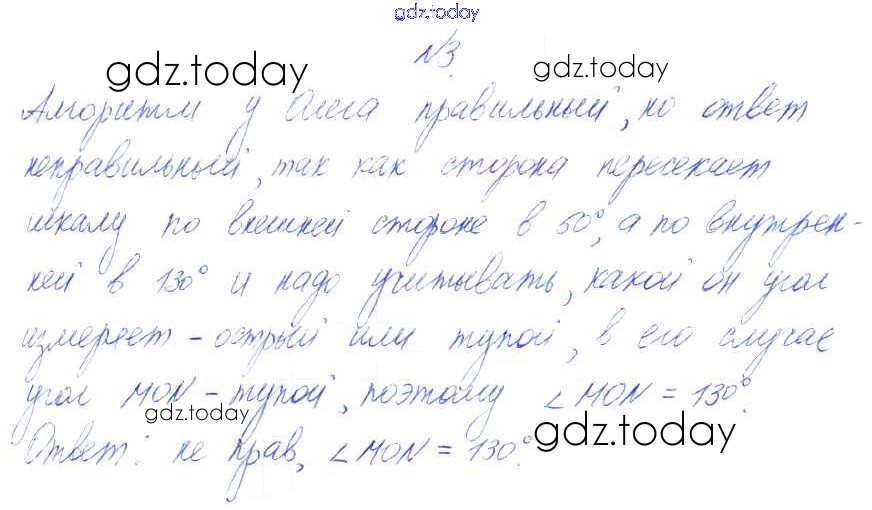 gdz.today
№3.
gdz.today
gdz.today
Алгоритм у Олега правильный, но ответ
неправильный, так как сторона пересекает
шкалу по внешней стороне в 50°, а по внутрен-
ней в 130° и надо учитывать, какой он угол
измеряет - острый или тупой, в его случае
угол MON - тупой, поэтому ∠MON = 130°.
gdz.today
gdz.today
Ответ: не прав, ∠MON = 130°.